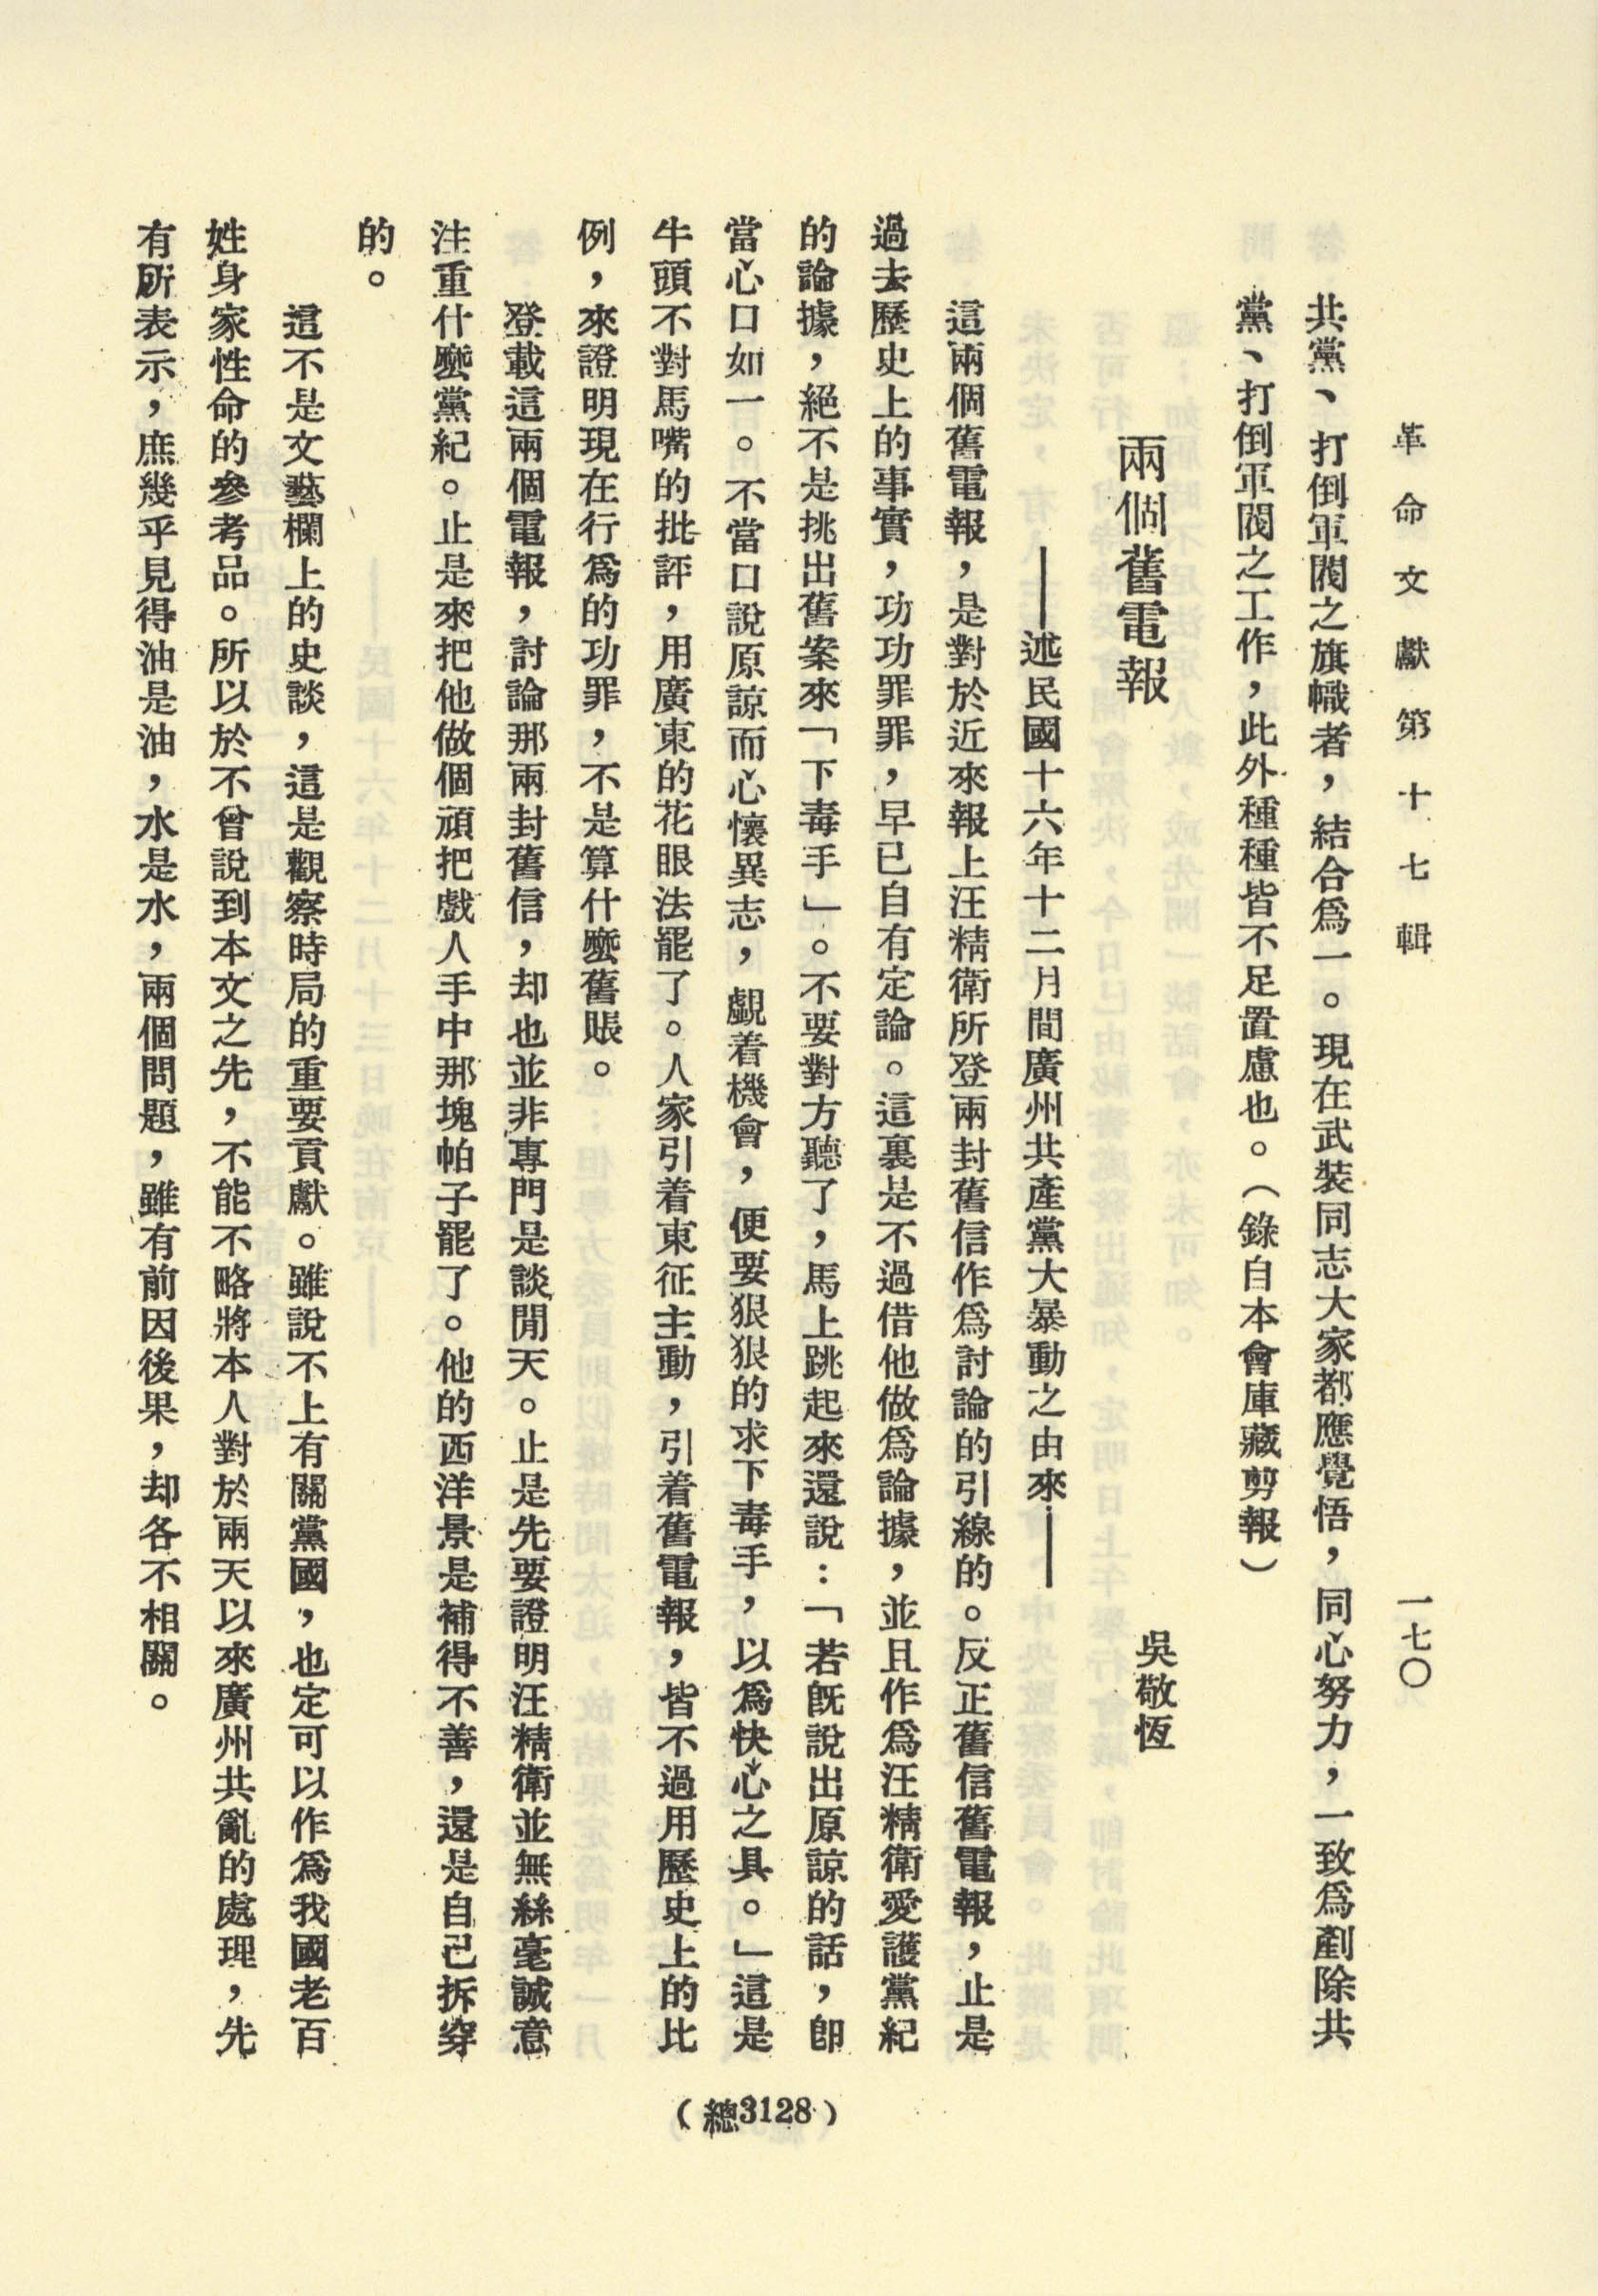 革命文獻第十七輯
一七〇
共黨、打倒軍閥之旗幟者，結合爲一。現在武裝同志大家都應覺悟，同心努力，一致爲剷除共
黨、打倒軍閥之工作，此外種種皆不足置慮也。（錄自本會庫藏剪報）
兩個舊電報
吳敬恆
——述民國十六年十二月間廣州共產黨大暴動之由來——
這兩個舊電報，是對於近來報上汪精衛所登兩封舊信作爲討論的引線的。反正舊信舊電報，止是
過去歷史上的事實，功功罪罪，早已自有定論。這裏是不過借他做爲論據，並且作爲汪精衛愛護黨紀
的論據，絕不是挑出舊案來「下毒手」。不要對方聽了，馬上跳起來還說：「若旣說出原諒的話，卽
當心口如一。不當口說原諒而心懷異志，覷着機會，便要狠狠的求下毒手，以爲快心之具。」這是
牛頭不對馬嘴的批評，用廣東的花眼法罷了。人家引着東征主動，引着舊電報，皆不過用歷史上的比
例，來證明現在行爲的功罪，不是算什麼舊賬。
登載這兩個電報，討論那兩封舊信，却也並非專門是談閒天。止是先要證明汪精衛並無絲毫誠意
注重什麼黨紀。止是來把他做個頑把戲人手中那塊帕子罷了。他的西洋景是補得不善，還是自己拆穿
的。
這不是文藝欄上的史談，這是觀察時局的重要貢獻。雖說不上有關黨國，也定可以作爲我國老百
姓身家性命的參考品。所以於不曾說到本文之先，不能不略將本人對於兩天以來廣州共亂的處理，先
有所表示，庶幾乎見得油是油，水是水，兩個問題，雖有前因後果，却各不相關。
（總3128）